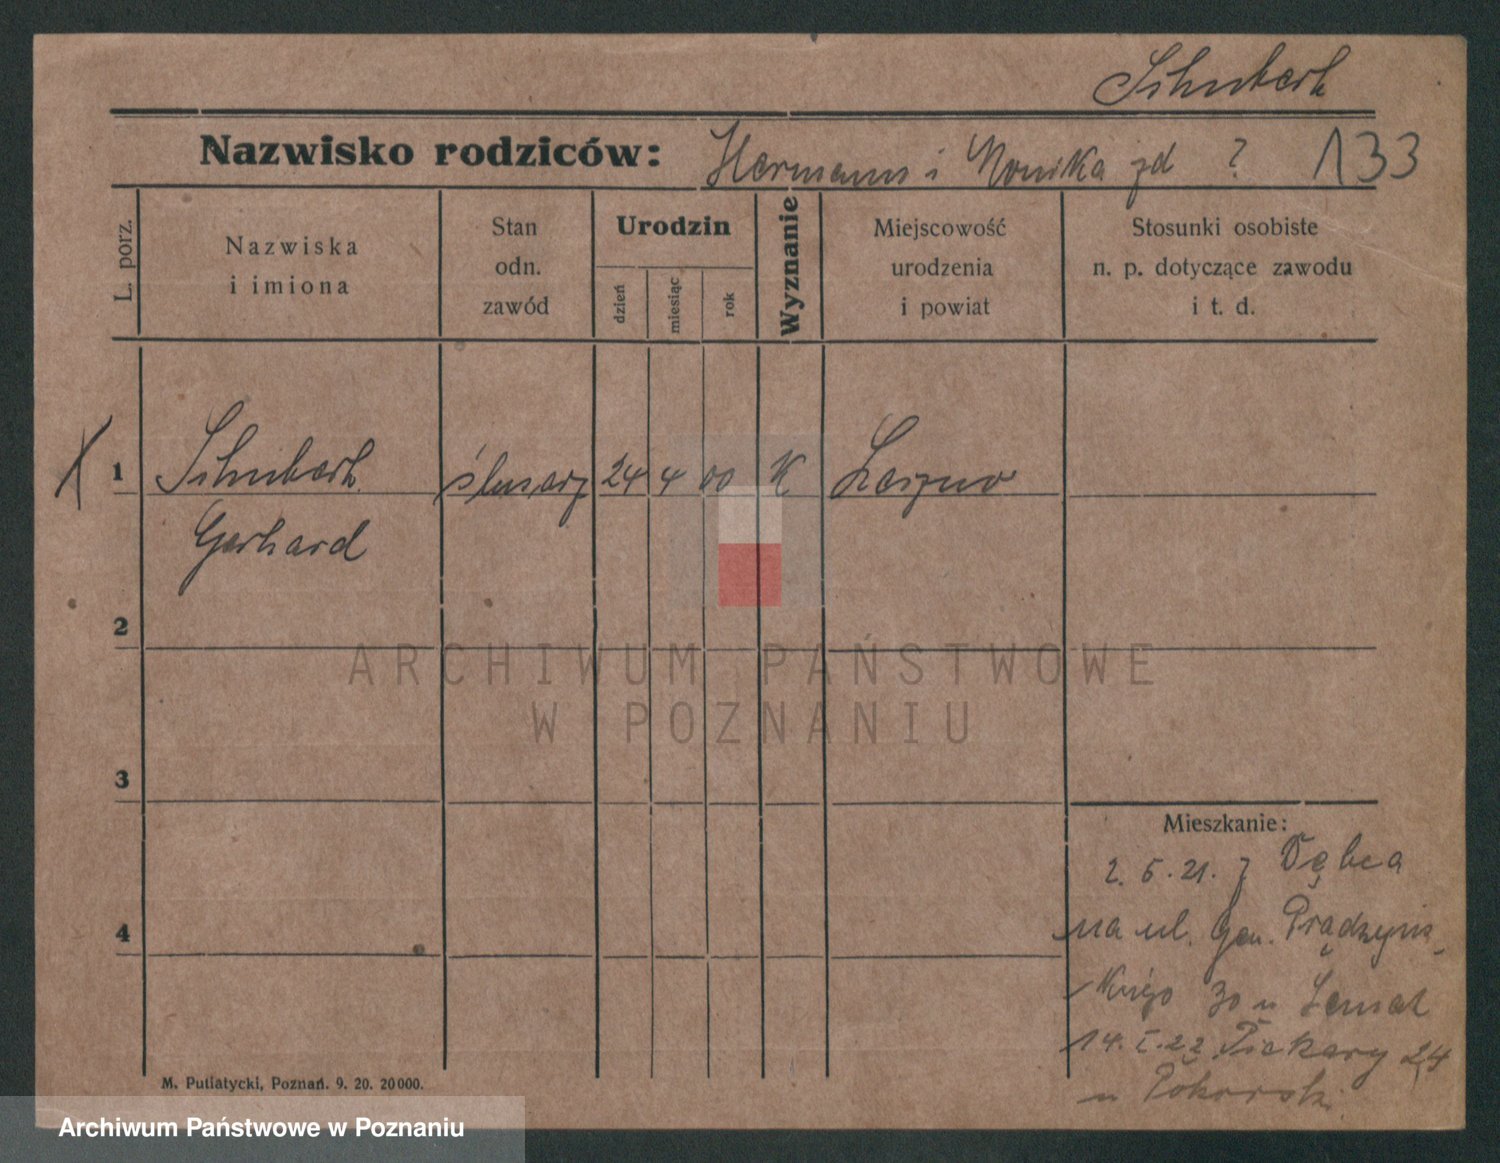 Schubert
Nazwisko rodziców: Hermann i Monika zd ? 133
L. porz.
Nazwiska
i imiona
Stan
odn.
zawód
Urodzin
dzień
miesiąc
rok
Wyznanie
Miejscowość
urodzenia
i powiat
Stosunki osobiste
n. p. dotyczące zawodu
i t. d.
1 Schubert ślusarz 24 4 00 K Leszno
Gerhard
2
3
4
Mieszkanie:
2. 5. 21. z Dębca
na ul. Gen. Prądzyńs-
kiego 30 u
14. I. 22 Piekary 24
u
M. Putiatycki, Poznań. 9. 20. 20000.
ARCHIWUM PAŃSTWOWE
W POZNANIU
Archiwum Państwowe w Poznaniu